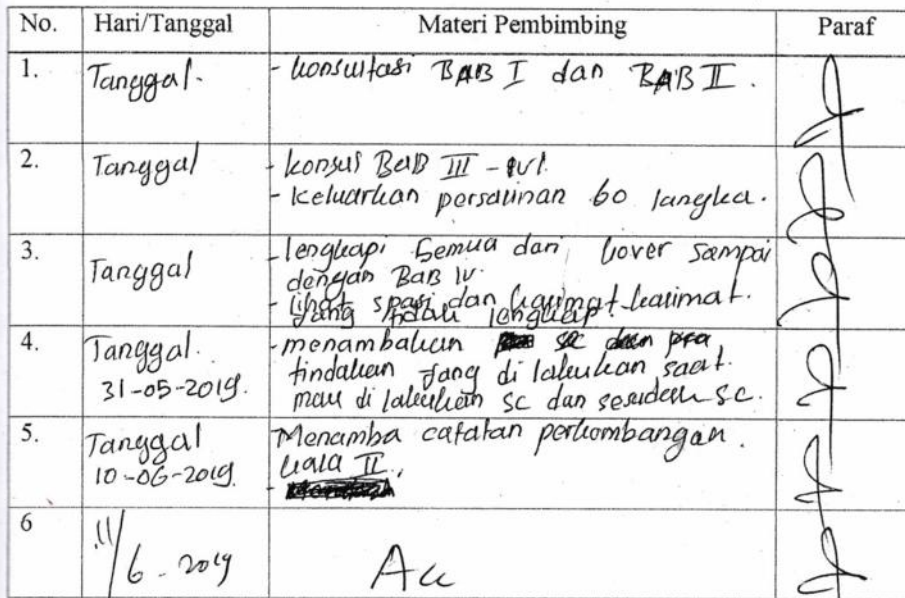 No. Hari/Tanggal Materi Pembimbing Paraf
1. Tanggal. - konsultasi BAB I dan BAB II.
2. Tanggal - konsul BaB III - IV
- keluarkan persalinan 60 langka.
3. Tanggal - lengkapi semua dari kover sampai
dengan BaB IV.
- lihat spasi dan kalimat-kalimat.
yang tidak lengkap.
4. Tanggal. - menambakan sc
31-05-2019. tindakan yang di lakukan saat.
mau di lakukan sc dan sesudah sc.
5. Tanggal Menamba catatan perkombangan.
10-06-2019. kala II.
6 11/6 - 2019 Acc